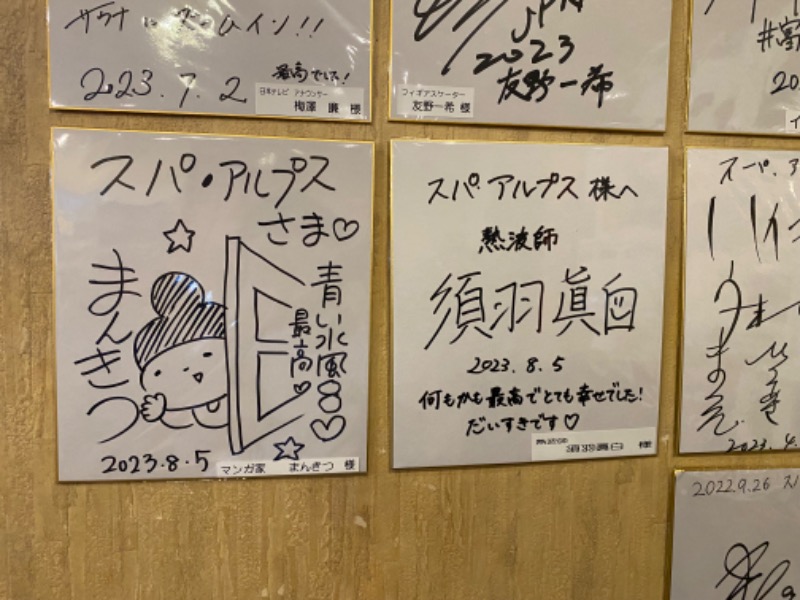 サウナ
ハイン!!
最高でした!
2023.7.2
日本テレビ アナウンサー
梅澤 廉 様
JPN
2023
友野一希
フィギアスケーター
友野一希 様
20
スパ・アルプス
さま♡
まんきつ
青い水風呂♡
最高♡
2023.8.5
マンガ家 まんきつ 様
スパ アルプス 様へ
熱波師
須羽眞白
2023.8.5
何もかも最高でとても幸せでした!
だいすきです♡
熱波師
須羽眞白 様
スーパ.ア
2023.4.
2022.9.26 ス